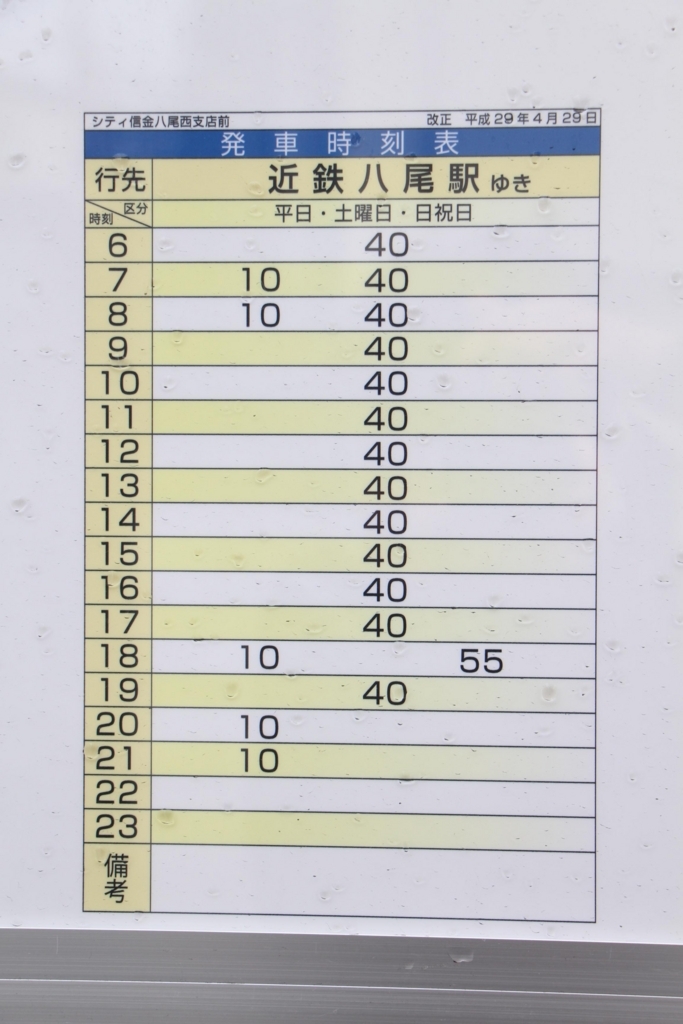 シティ信金八尾西支店前 改正 平成29年4月29日
発車時刻表
行先 近鉄八尾駅ゆき
時刻 区分 平日・土曜日・日祝日
6 40
7 10 40
8 10 40
9 40
10 40
11 40
12 40
13 40
14 40
15 40
16 40
17 40
18 10 55
19 40
20 10
21 10
22
23
備考